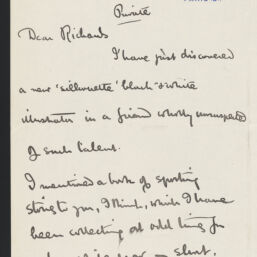 Private
Dear Richards
I have just discovered
a new 'silhouette' black & white
illustrator in a friend wholly unsuspected
of such talent.
I mentioned a book of sporting
stories to you, I think, which I have
been collecting at odd times for